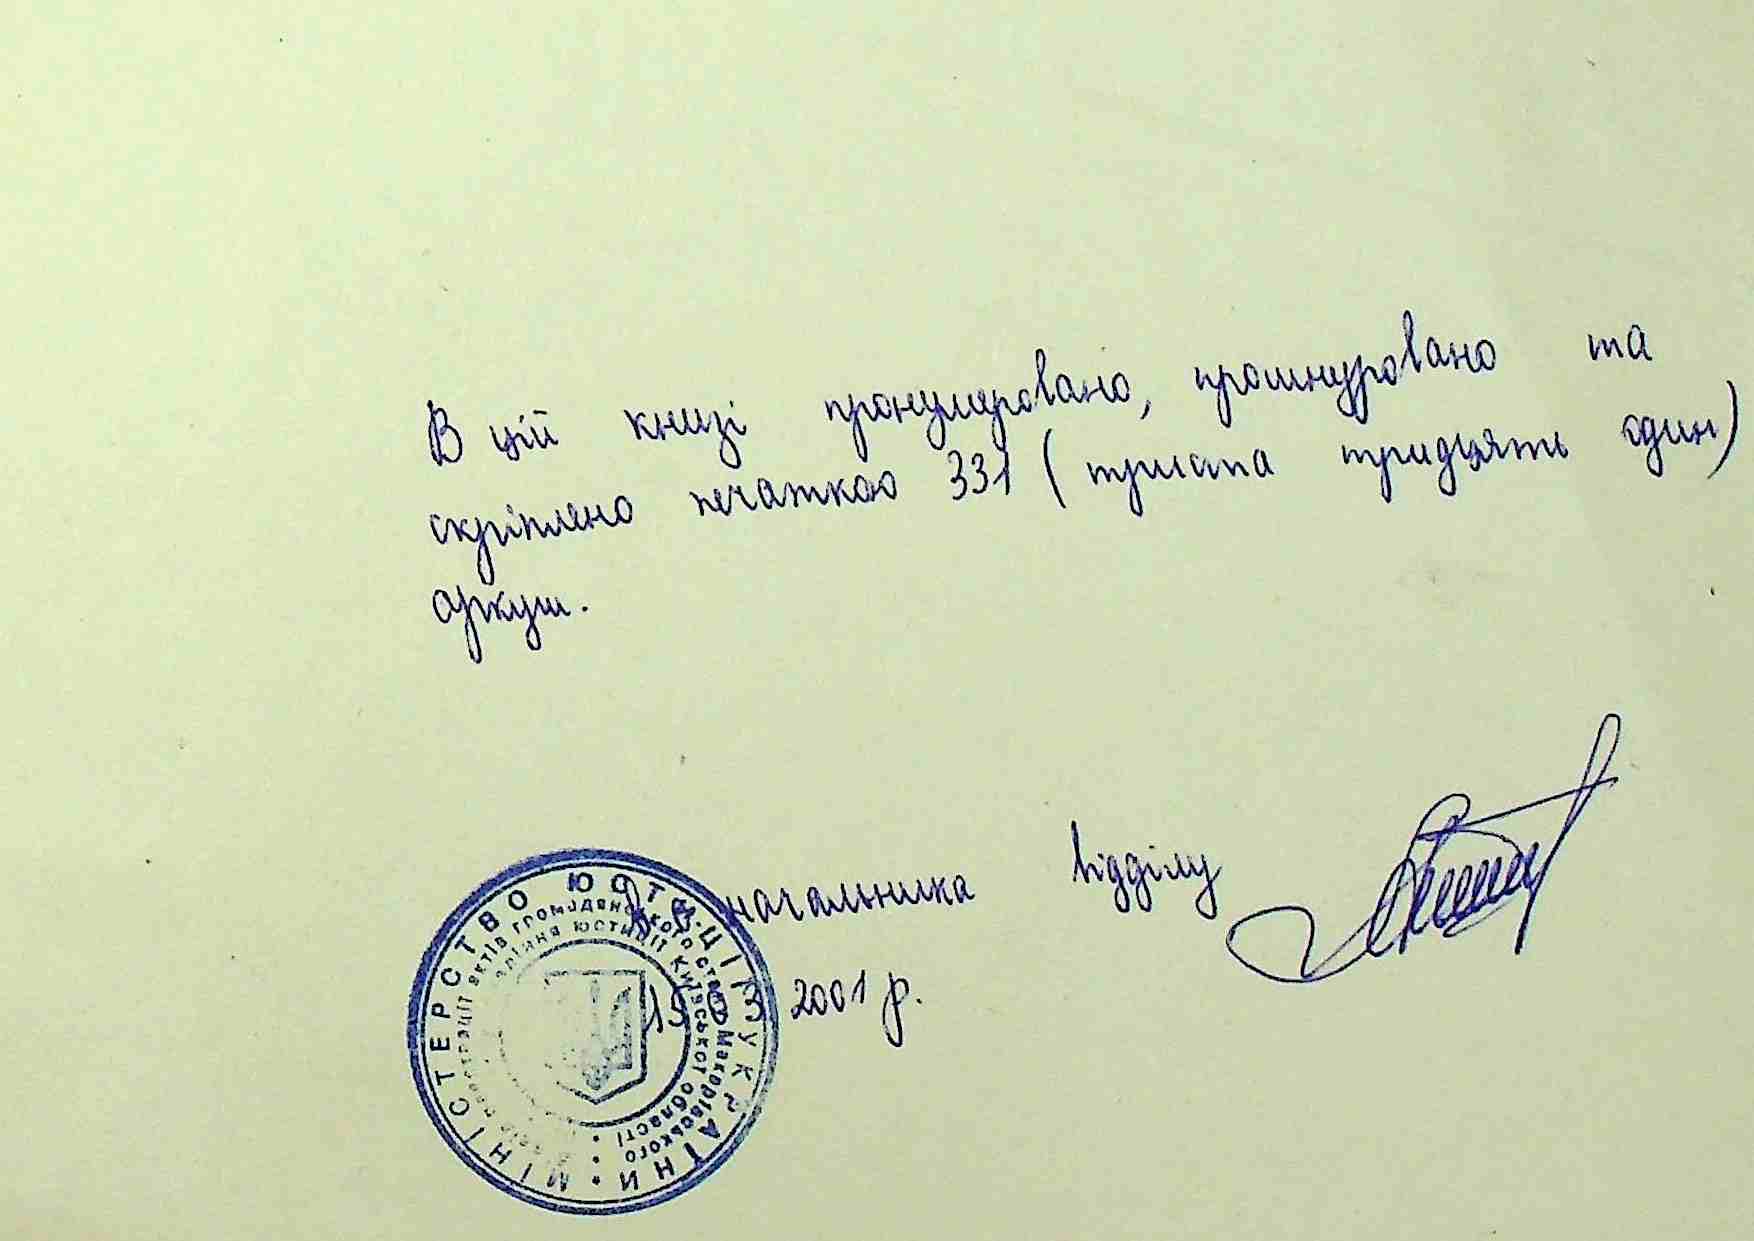 В цій книзі пронумеровано, прошнуровано та
скріплено печаткою 331 (триста тридцять один)
аркуш.
начальника відділу
15 2001 р.
МІНІСТЕРСТВО ЮСТИЦІЇ УКРАЇНИ
реєстрації актів громадянського стану Макарівського
юстиції Київської області